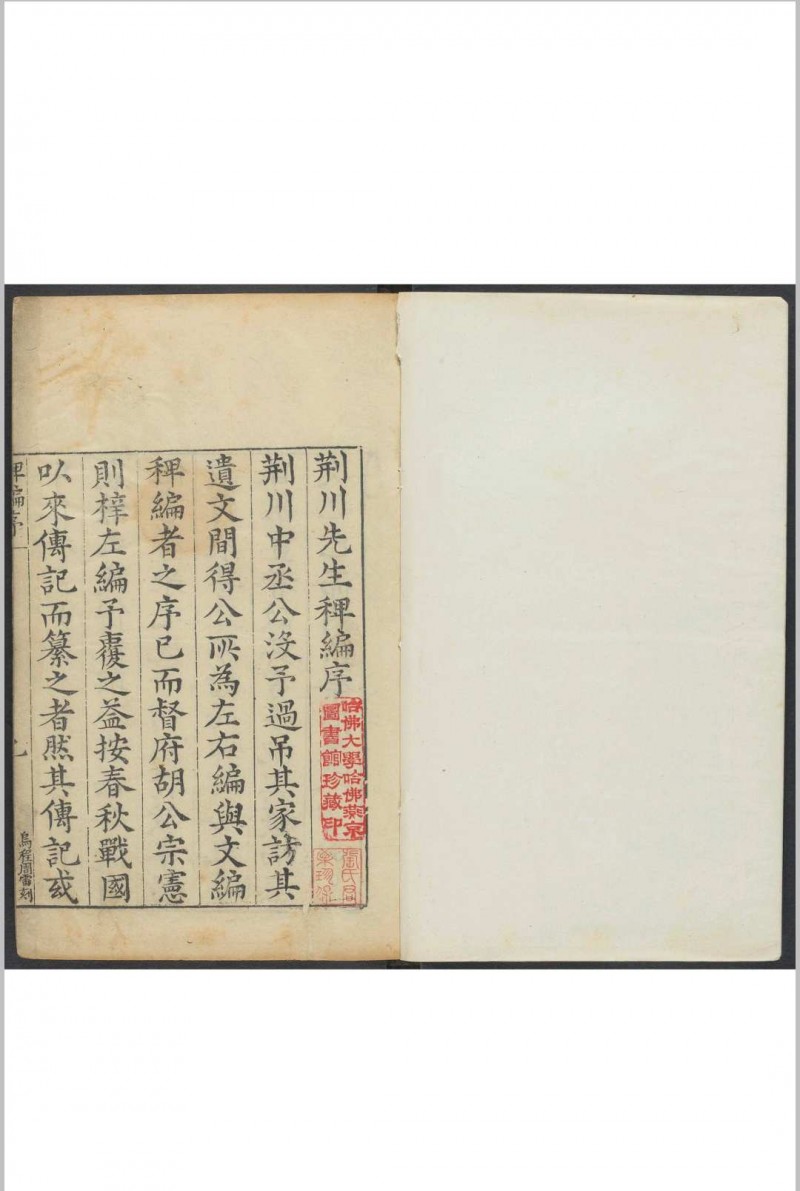 荆川先生稗編序
荆川中丞公没予過吊其家訪其
遺文間得公所為左右編與文編
稗編者之序已而督府胡公宗憲
則梓左編予覆之益按春秋戰國
以來傳記而纂之者然其傳記或
稗編序
烏程周雷刻
哈佛大學哈佛燕京
圖書館珍藏印